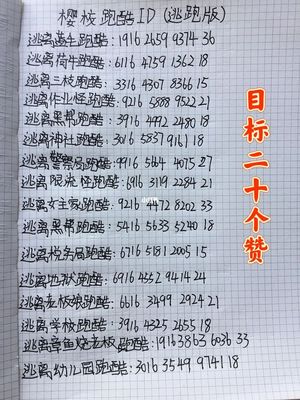 樱校跑酷ID(逃跑版)
逃离萬牛跑酷:1916 2659 9374 36
逃离荷牛跑酷:6116 4759 1362 18
逃离三校跑酷:3316 4307 8366 15
逃离作业怪跑酷:9216 5888 9522 21
逃离黑帮跑酷:3916 4492 2480 18
逃离神社跑酷:3016 5837 9161 18
逃离警察局跑酷:9916 5644 4075 27
逃离限流怪跑酷:6916 3119 2284 21
逃离女主家跑酷:9216 4472 8202 33
逃离黑帮跑酷:5416 5633 5240 18
逃离税务局跑酷:6716 5181 2005 15
逃离地狱跑酷:6916 4352 9414 24
逃离老板娘跑酷:6616 3499 2924 21
逃离学校跑酷:3916 4325 2655 18
逃离章鱼烧老板跑酷:1916 3863 6036 33
逃离幼儿园跑酷:3016 3549 9741 18
目标二十个赞